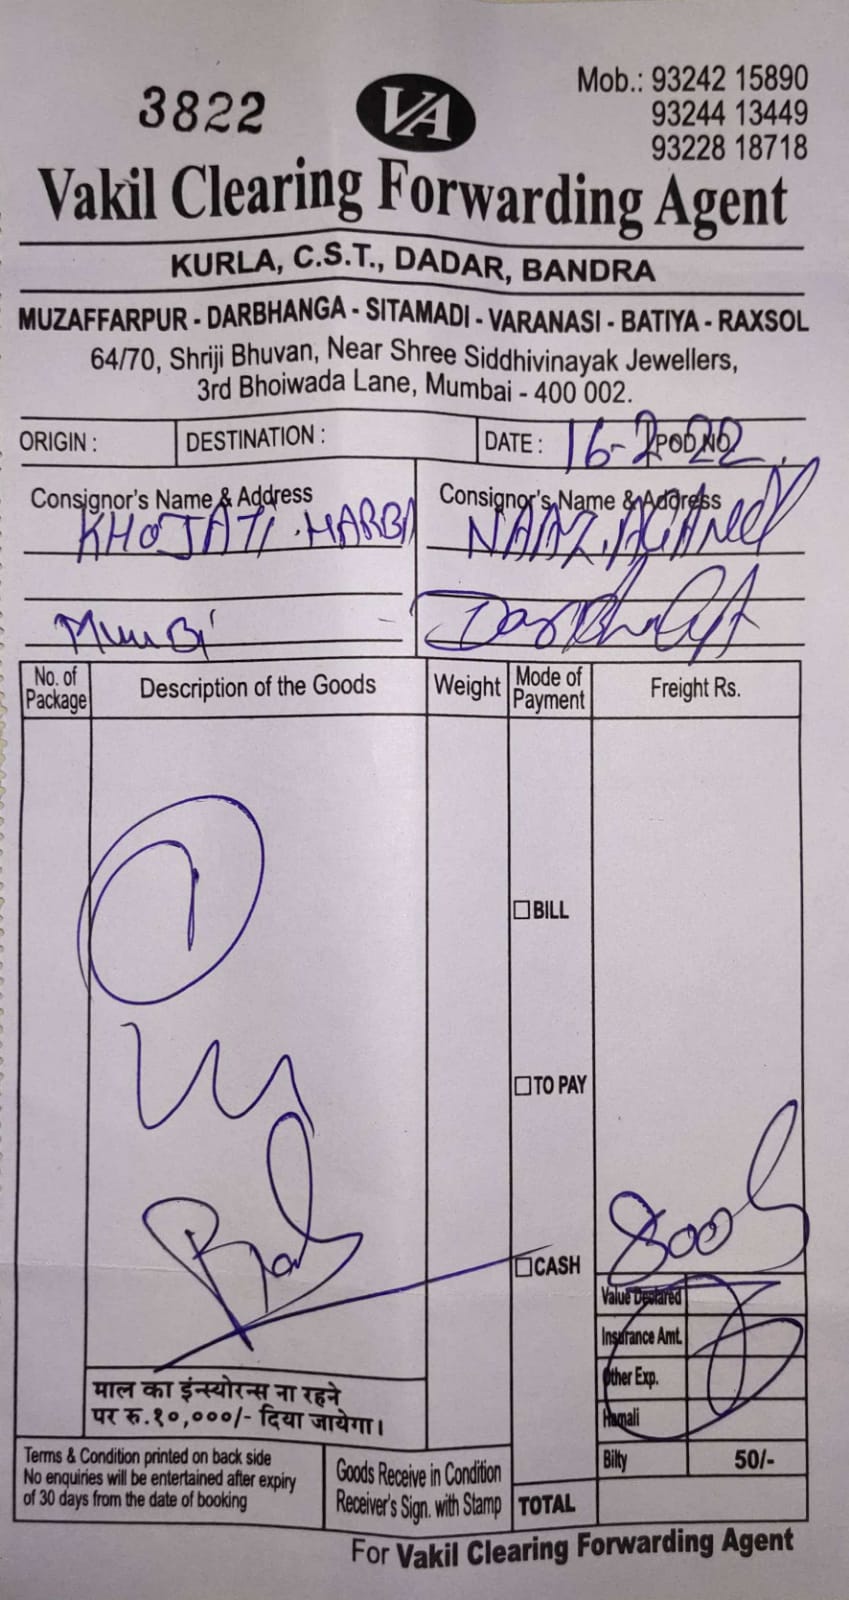 3822
VA
Mob.: 93242 15890
93244 13449
93228 18718
Vakil Clearing Forwarding Agent
KURLA, C.S.T., DADAR, BANDRA
MUZAFFARPUR - DARBHANGA - SITAMADI - VARANASI - BATIYA - RAXSOL
64/70, Shriji Bhuvan, Near Shree Siddhivinayak Jewellers,
3rd Bhoiwada Lane, Mumbai - 400 002.
ORIGIN : DESTINATION : DATE : 16-2-22 POD NO.
Consignor's Name & Address Consignor's Name & Address
KHOJATI
No. of Package Description of the Goods Weight Mode of Payment Freight Rs.
1
BILL
TO PAY
CASH
Value Declared
Insurance Amt.
Other Exp.
Hamali
Bilty 50/-
माल का इंन्स्योरन्स ना रहने
पर रु.१०,०००/- दिया जायेगा।
Terms & Condition printed on back side
No enquiries will be entertained after expiry
of 30 days from the date of booking
Goods Receive in Condition
Receiver's Sign. with Stamp
TOTAL
For Vakil Clearing Forwarding Agent